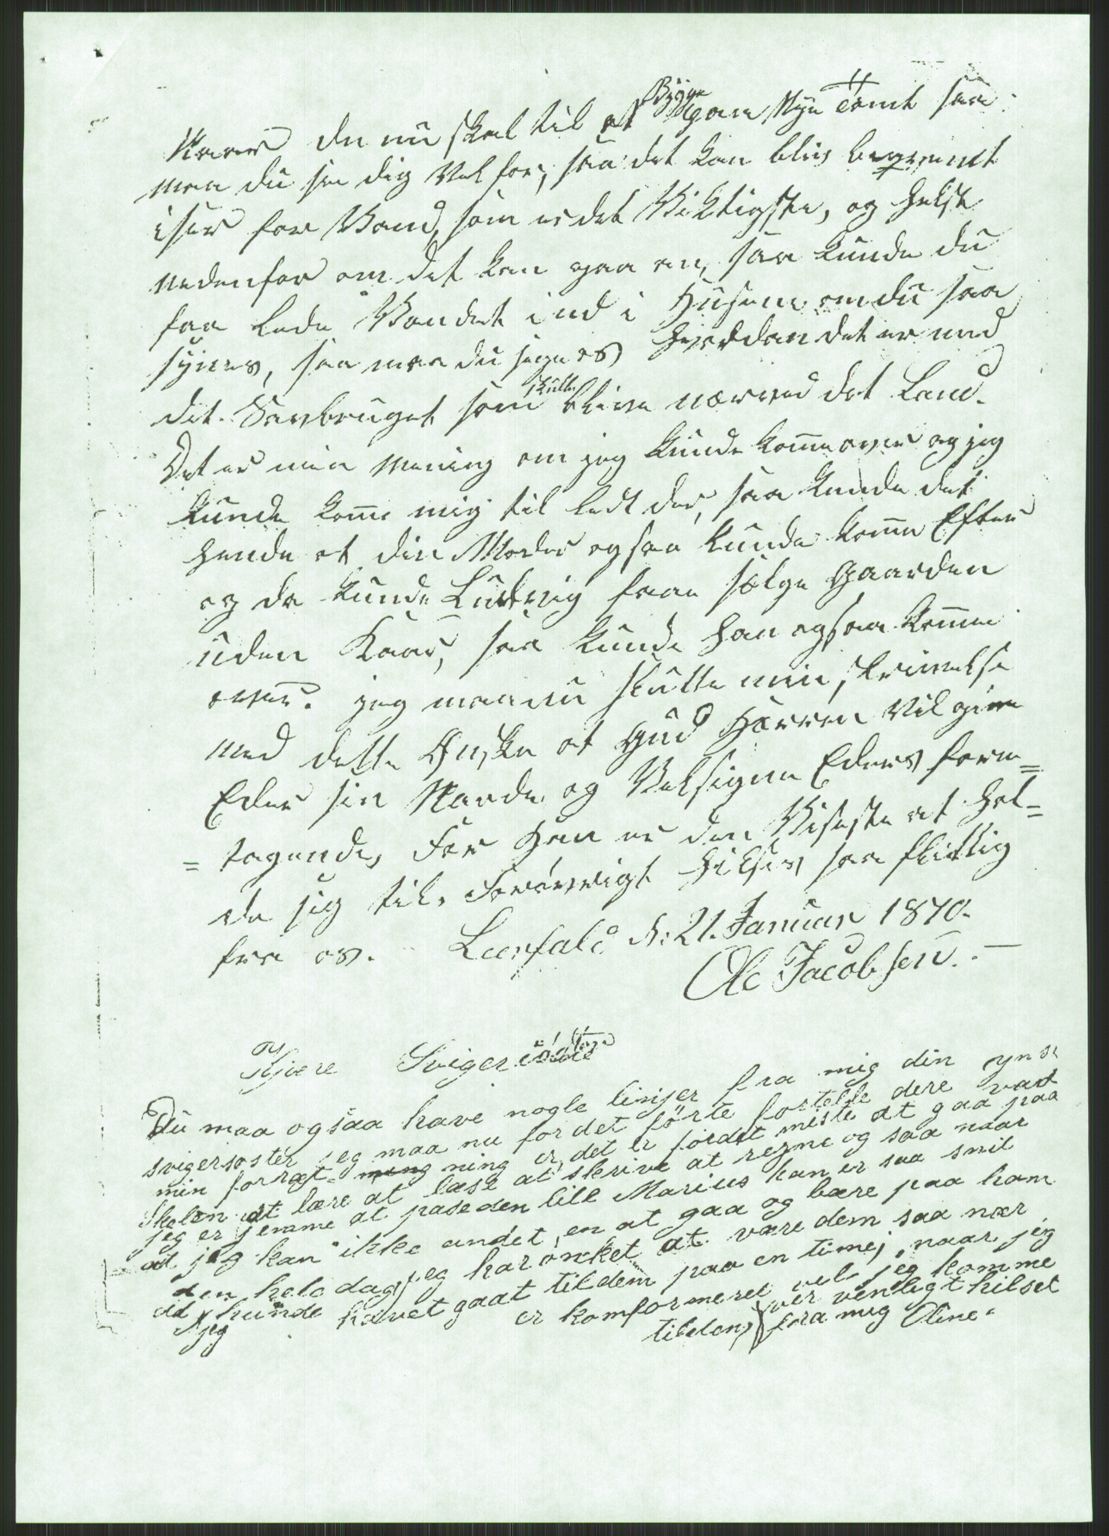 Naar du nu skal til at Bygge paa Nye Tomt saa
maa du se dig Vel for, saa det kan blive beqvemt
især for Vand, som er det Viktigste, og helst
nedenfor om det kan gaa an, saa kunde du
faa lede Vandet ind i Husene om du saa
synes, saa maa du sige os hvordan det er med
det Savbruget som skulle blive nærved dit Land.
Det er min Mening om jeg kunde komme over og jeg
kunde komme mig til lidt der, saa kunde det
hende at din Moder ogsaa kunde komme Efter
og da kunde Ludvig faae sælge Gaarden
uden Kaar, saa kunde han ogsaa komme
over. jeg maa nu slutte min skrivelse
med dette Ønske at Gud Herren Vil give
Eder sin Naade og Velsigne Eders fore=
=tagende, For Han er den Viseste at hol=
de sig til. Forøvrigt hilses saa flittig
fra os. Leerfald d: 21. Januar 1870.
Ole Jacobsen. —
Kjære Sviger
Du maa ogsaa have nogle linjer fra mig din
svigersøster jeg maa nu for det förte fortelle dere vad
min forræt ning er, det er fordet meste at gaa paa
Skolen at lære at læse at skrive at regne og saa naar
jeg er jemme at pase den lill Marius han er saa snil
at jeg kan ikke andet en at gaa og bære paa ham
den hele dag, jeg har önsket at være dem saa nær
at jeg kunde havet gaat til dem paa en time, naar jeg
er komformeret vil jeg komme
til dem, ver venligt hilset
fra mig Oline